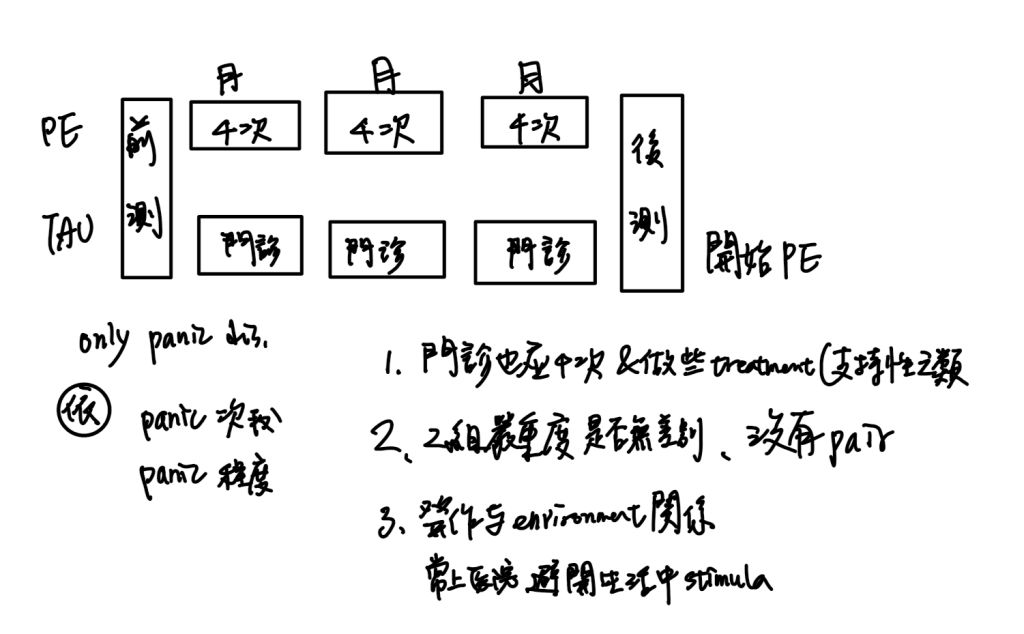 月 月 月
PE 前測 4次 4次 4次 後測
TAU 門診 門診 門診 開始PE
only panic dis.
依 panic 次數
panic 程度
1. 門診也应4次 & 做些 treatment (支持性之類
2、2組嚴重度是否無差別、沒有 pair
3、發作与 environment 関係
常上医院 避開生活中 stimula